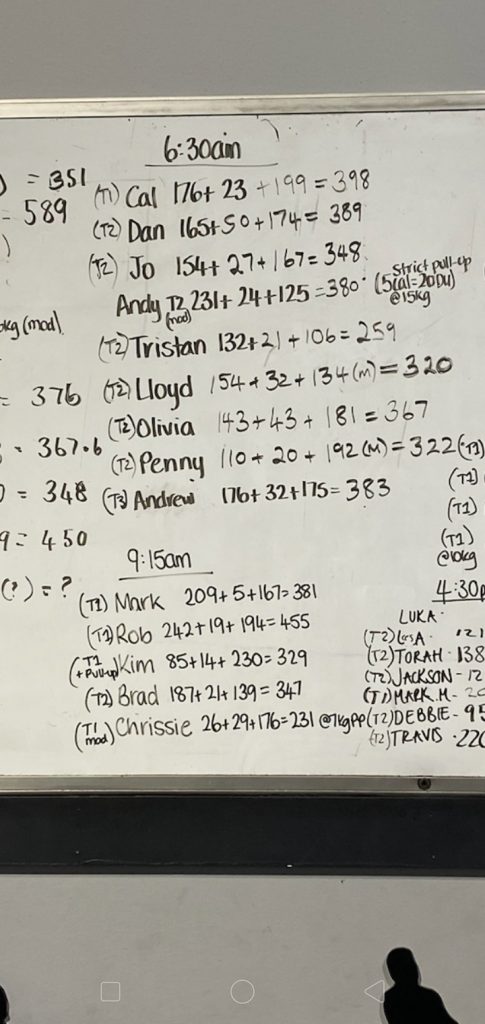 6:30am
= 351
= 589
(T1) Cal 176+ 23 +199 = 398
(T2) Dan 165+50+174= 389
(T2) Jo 154+ 27+ 167= 348
Andy T2 (mod) 231+ 24+125 =380 (5cal=20DU) @15kg
Strict pull-up
kg (mod)
(T2) Tristan 132+21 + 106= 259
= 376
(T2) Lloyd 154+32+134(M)=320
(T2) Olivia 143+43+ 181 = 367
= 367.6
(T2) Penny 110+ 20 + 192(M)= 322 (T3)
= 348
(T3) Andrew 176+32+175= 383
(T1)
(T1)
(T1)
@10kg
9= 450
(?) = ?
9:15am
(T2) Mark 209+5+167=381
(T1) Rob 242+19+ 194= 455
(T1 + Pull-up) Kim 85+14+ 230=329
(T2) Brad 187+21+139= 347
(T1 mod) Chrissie 26+29+176=231 @7kg PP
4:30p
LUKA
(T2) LISA 121
(T2) TORAH 138
(T2) JACKSON - 12
(T1) MARK.M - 20
(T2) DEBBIE - 95
(T2) TRAVIS 220